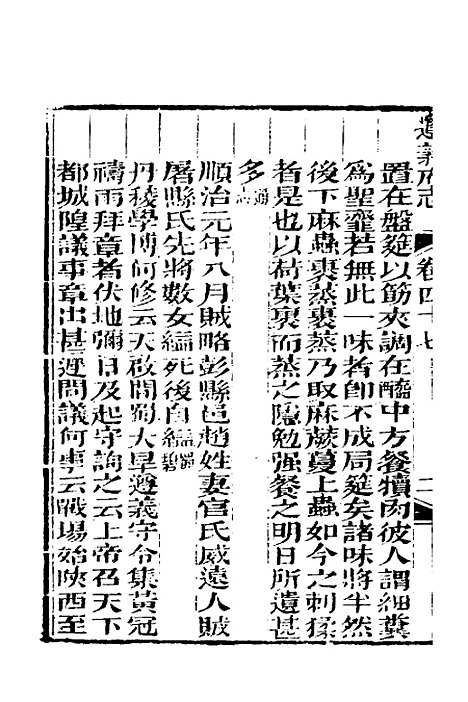 遵義府志 卷四十七 二
置在盤筵以筯夾調在醯中方餐犢肉彼人謂細糞
為聖虀若無此一味者即不成局筵矣諸味將半然
後下麻蟲裹蒸裹蒸乃取麻蕨蔓上蟲如今之刺猱
者是也以荷葉裹而蒸之隱勉强餐之明日所遺甚
多
順治元年八月賊略彭縣邑趙姓妻官氏威遠人賊
屠縣氏先將數女縊死後自縊
丹稜學博何修云天啟間蜀大旱遵義守令集黃冠
禱雨拜章者伏地彌日及起守詢之云上帝召天下
都城隍議事章出甚遲問議何事云戰場始陝西至